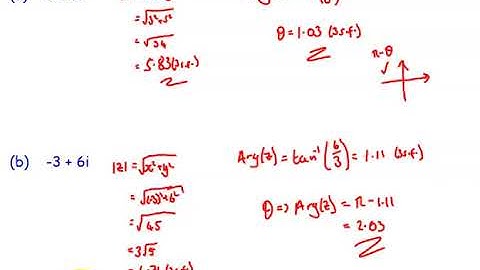 = √3²+5²
= √34
= 5.83 (3s.f.)
θ = 1.03 (3s.f.)
π-θ
(b) -3 + 6i
|z| = √x²+y²
= √(-3)²+6²
= √45
= 3√5
Arg(z) = tan⁻¹(6/3) = 1.11 (3s.f.)
θ => Arg(z) = π - 1.11
= 2.03